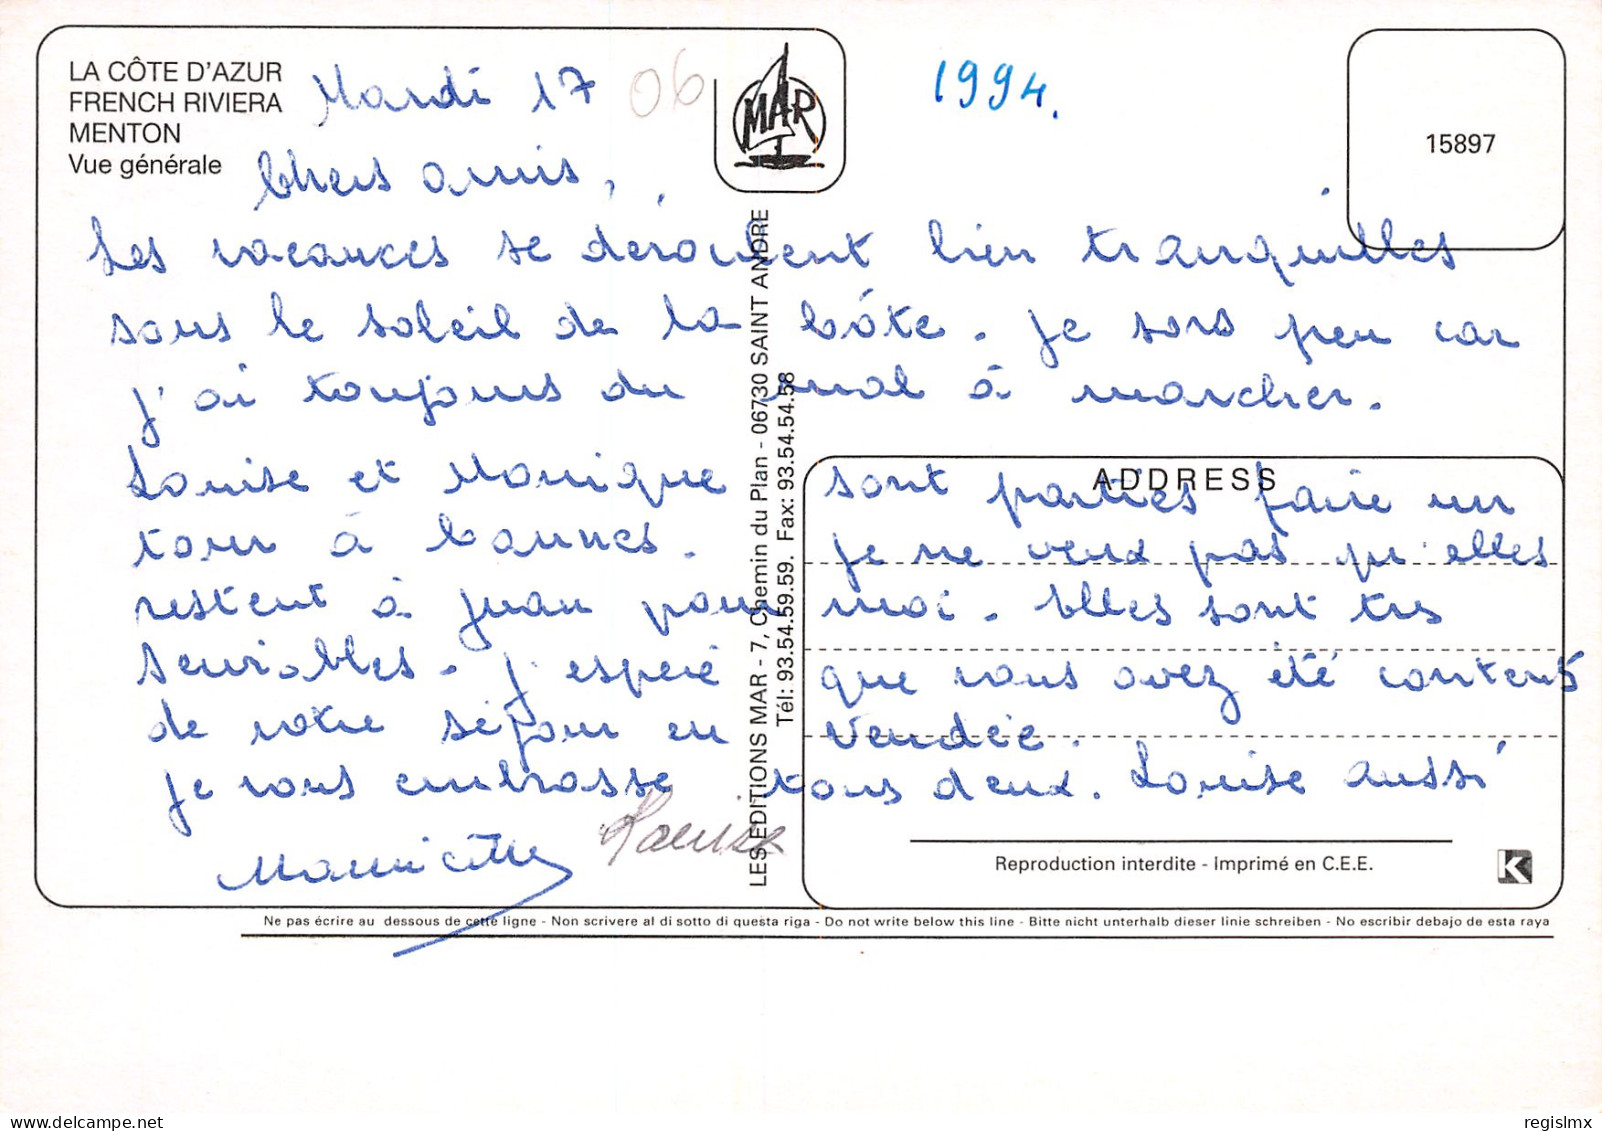 LA CÔTE D'AZUR
FRENCH RIVIERA
MENTON
Vue générale
Mardi 17
06
MAR
1994.
15897
Chers amis,
Les vacances se déroulent bien tranquilles
sous le soleil de la Côte. Je sors peu car
j'ai toujours du mal à marcher.
Louise et Monique sont parties faire un
tour à Cannes. Je ne veux pas qu'elles
restent à Juan pour moi. Elles sont très
serviables. J'espère que vous avez été contents
de votre séjour en Vendée.
Je vous embrasse tous deux. Louise aussi
Louise
LES EDITIONS MAR - 7, Chemin du Plan - 06730 SAINT ANDRE
Tél: 93.54.59.59. Fax: 93.54.54.58
ADDRESS
Reproduction interdite - Imprimé en C.E.E.
K
Ne pas écrire au dessous de cette ligne - Non scrivere al di sotto di questa riga - Do not write below this line - Bitte nicht unterhalb dieser linie schreiben - No escribir debajo de esta raya
regislmx